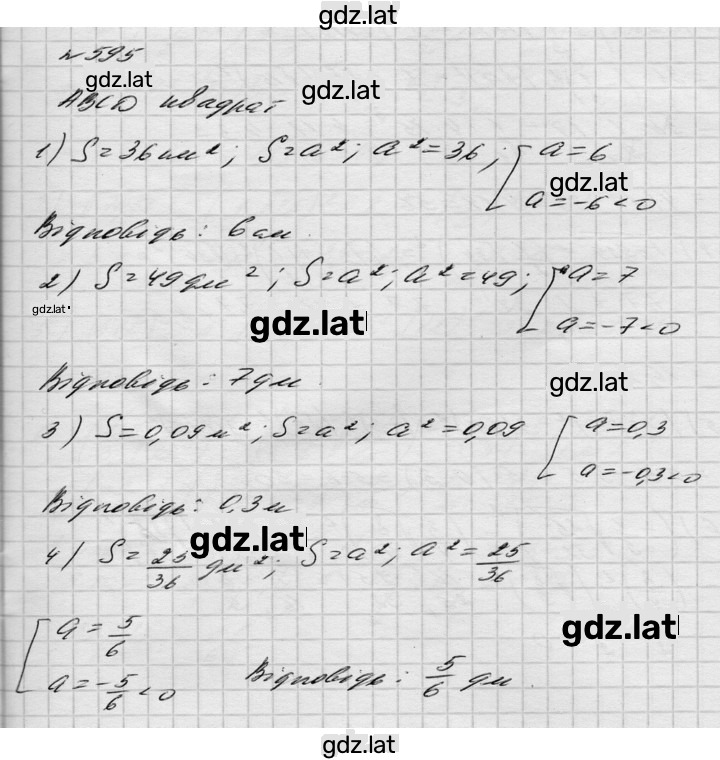 gdz.lat
№595
gdz.lat
ABCD квадрат gdz.lat
1) S = 36 см²; S = a²; a² = 36; [ a = 6
gdz.lat
a = -6 < 0
Відповідь: 6 см.
2) S = 49 дм²; S = a²; a² = 49; [ a = 7
gdz.lat
gdz.lat
a = -7 < 0
Відповідь: 7 дм.
gdz.lat
3) S = 0,09 м²; S = a²; a² = 0,09 [ a = 0,3
a = -0,3 < 0
Відповідь: 0,3 м
gdz.lat
4) S = 25/36 дм²; S = a²; a² = 25/36
[ a = 5/6
gdz.lat
a = -5/6 < 0
Відповідь: 5/6 дм.
gdz.lat